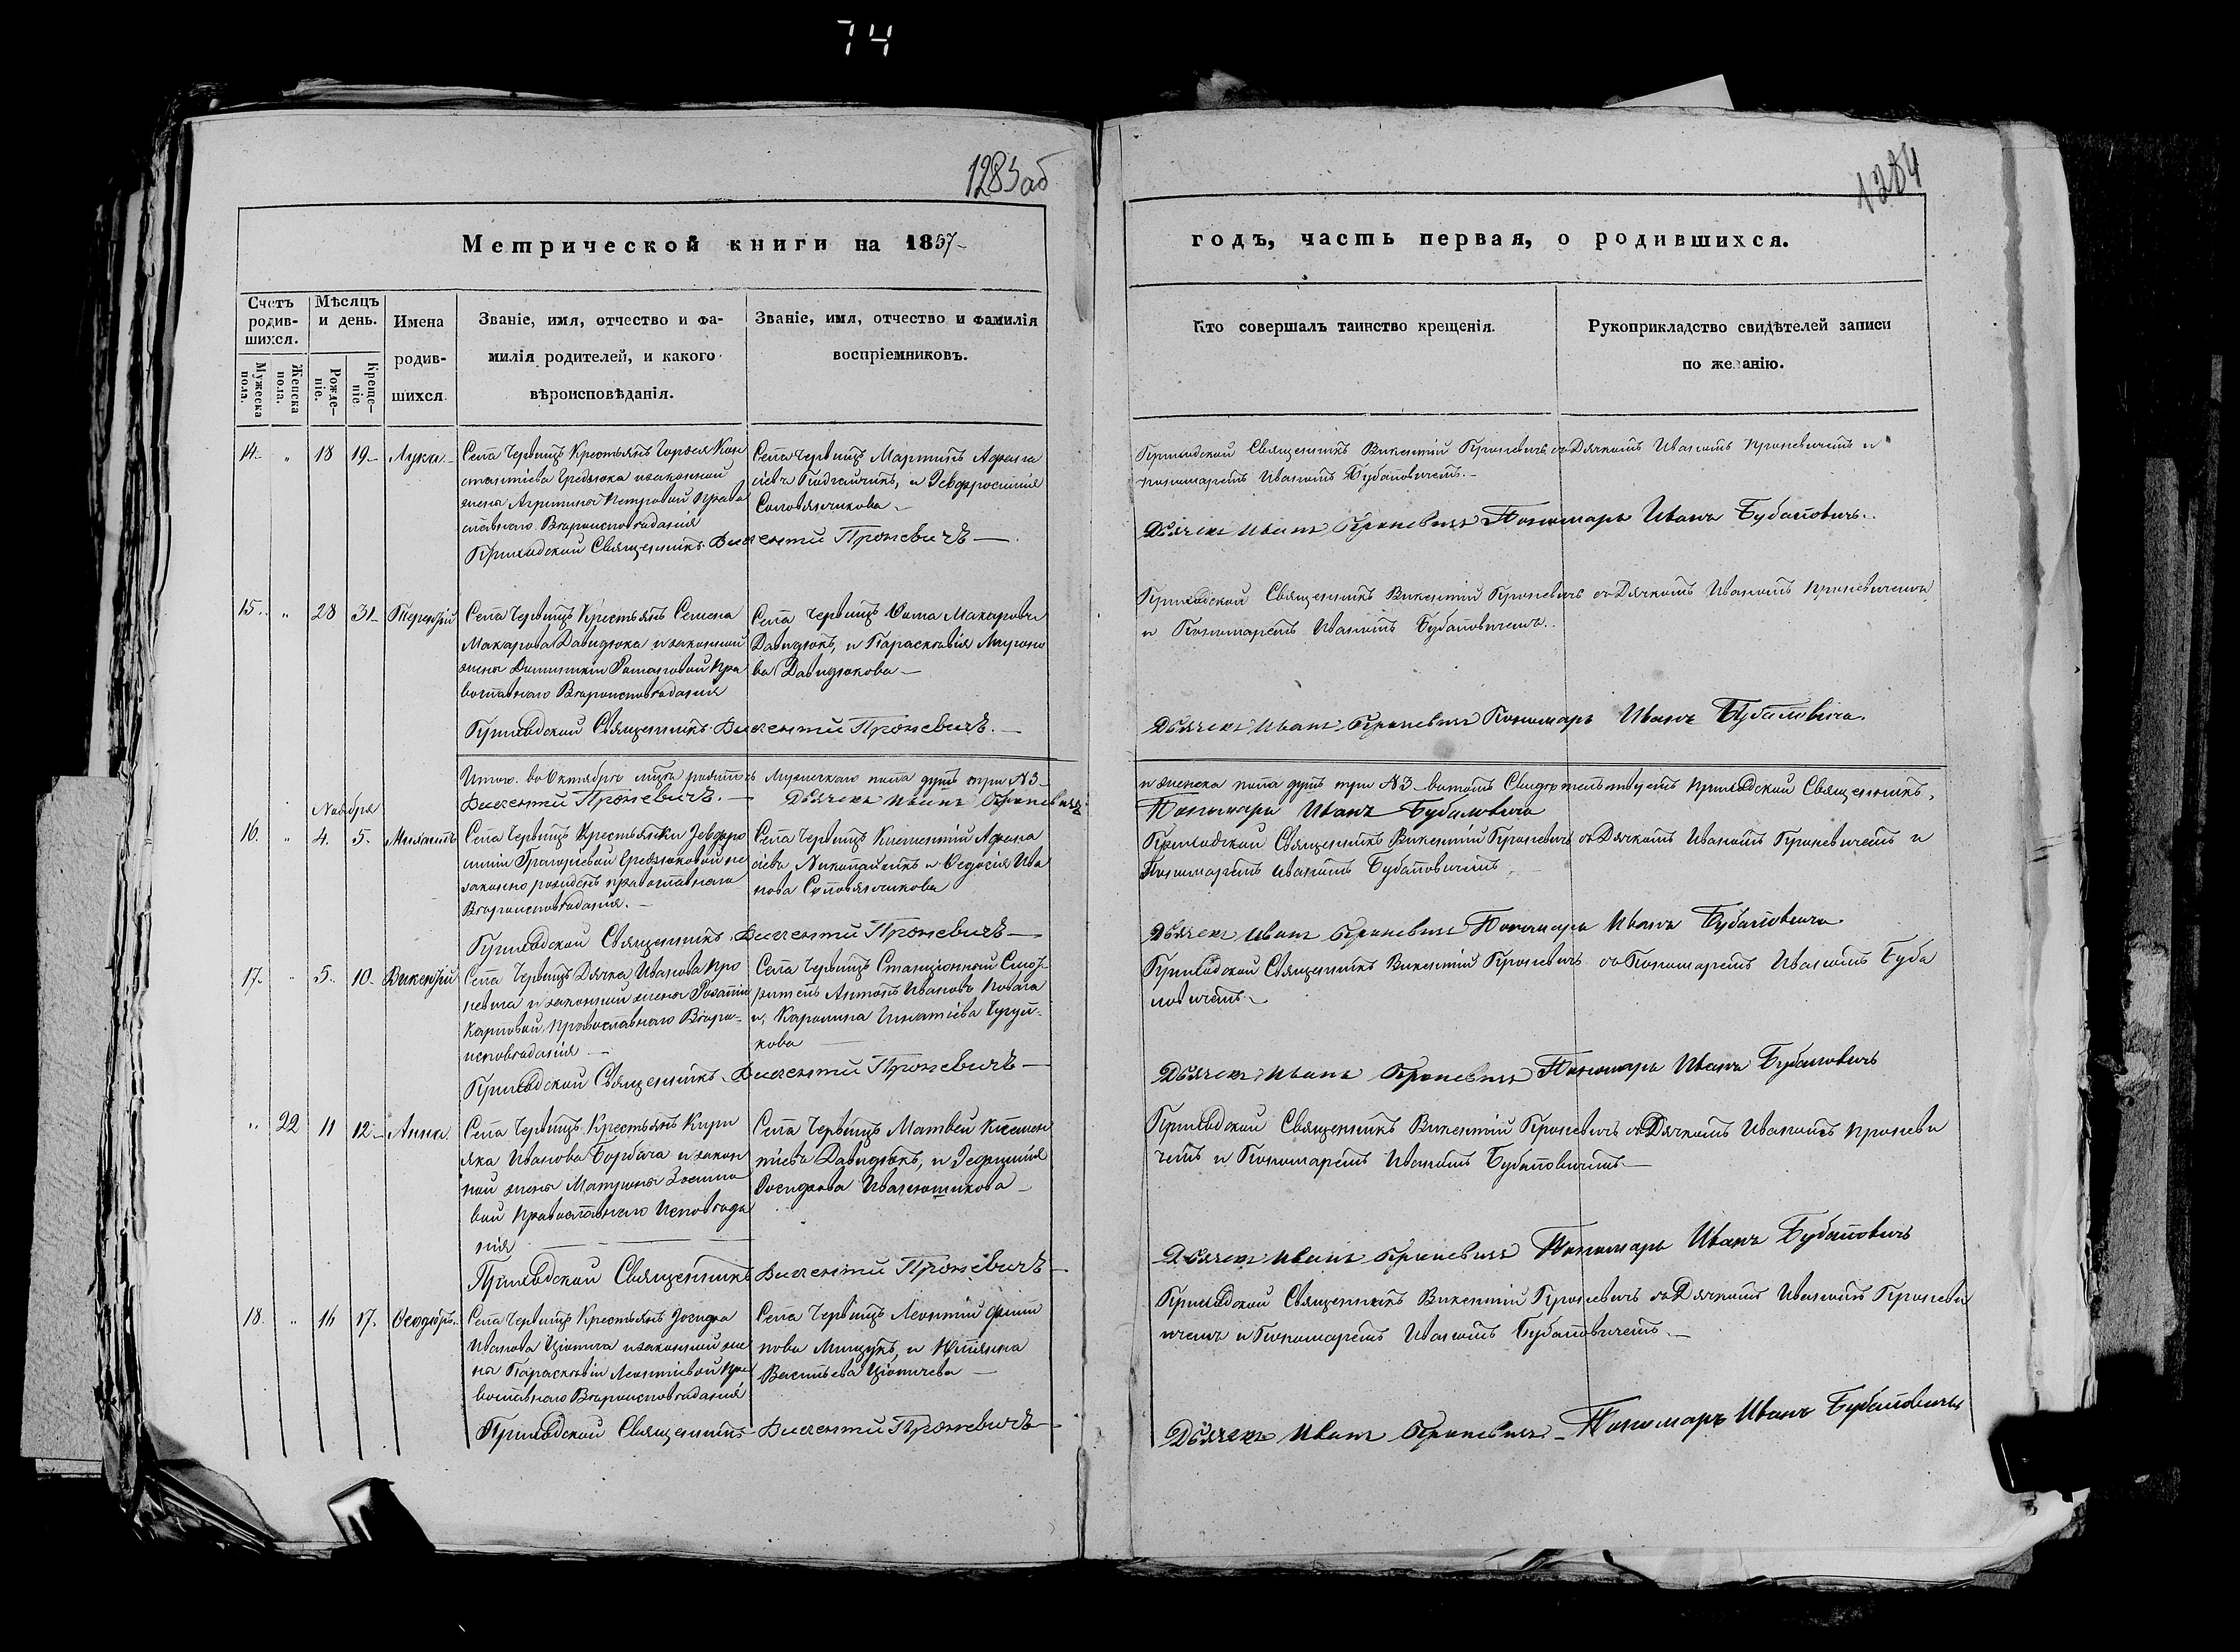 74
1283 аб
1284
Метрической книги на 1857
годъ, часть первая, о родившихся.
Счетъ родив-шихся.
Мужеска пола.
Женска пола.
Мѣсяцъ и день.
Рожде-ніе.
Креще-ніе
Имена родив-шихся.
Званіе, имя, отчество и фа-
милія родителей, и какого
вѣроисповѣданія.
Званіе, имя, отчество и фамилія
воспріемниковъ.
Кто совершалъ таинство крещенія.
Рукоприкладство свидѣтелей записи
по же анію.
14 " 18 19 Лука
Села Червищъ Крестьянъ Гордея Кон
стантіева Гребзюка и законной
жены Агрипины Петровой Право
славнаго Вѣроисповѣданія
Приходской Священникъ Викентій Проневичъ
Села Червищъ Мартинъ Афана
сіевъ, и Іевфросинія
Приходской Священникъ Викентій Проневичъ съ Дячкомъ Иваномъ Проневичемъ и
пономаремъ Иваномъ Бубаловичемъ.
Дьячекъ Иванъ Проневичъ Пономарь Иванъ Бубаловичъ.
15. " 28 31 Терентій
Села Червищъ Крестьянъ Семена
Макарова Давидюка и законной
жены Романовой Пра
вославнаго Вѣроисповѣданія
Приходской Священникъ Викентій Проневичъ.
Села Червищъ Фома Макаровъ
Давидюкъ, и Параскевія Мироно
ва Давидюкова
Приходской Священникъ Викентій Проневичъ съ Дячкомъ Иваномъ Проневичемъ
и Пономаремъ Иваномъ Бубаловичемъ.
Дьячекъ Иванъ Проневичъ Пономарь Иванъ Бубаловичъ.
Итого. во Октябрѣ мѣсяцѣ родилось Мужескаго пола душъ три №3
и женска пола душъ три №3 вътомъ Свидѣтельствуетъ Приходской Священникъ,
Викентій Проневичъ. Дьячекъ Иванъ Проневичъ
Пономарь Иванъ Бубаловичъ
Ноября
16. " 4. 5. Михаилъ
Села Червищъ Крестьянки Іевфро
синіи Григорьевой Гребзюковой не
законно рожденъ православнаго
Вѣроисповѣданія.
Приходской Священникъ Викентій Проневичъ
Села Червищъ Климентій Афана
сіевъ и Федосія Ива
нова
Приходской Священникъ Викентій Проневичъ съ Дячкомъ Иваномъ Проневичемъ и
Пономаремъ Иваномъ Бубаловичемъ.
Дьячекъ Иванъ Проневичъ Пономарь Иванъ Бубаловичъ
17. " 5. 10. Викентій
Села Червищъ Дячка Ивана Про
невича и законной жены Розаліи
Карповой, Православнаго Вѣро-
исповѣданія
Приходской Священникъ Викентій Проневичъ
Села Червищъ Станціонной Смот-
ритель Антонъ Ивановъ
и, Каролина Игнатіева
кова
Приходской Священникъ Викентій Проневичъ съ Пономаремъ Иваномъ Буба
ловичемъ.
Дьячекъ Иванъ Проневичъ Пономарь Иванъ Бубаловичъ
" 22 11 12 Анна
Села Червищъ Крестьянъ Кири
яка Иванова Борбача и закон
ной жены Матроны
вой Православнаго Исповѣда
нія
Приходской Священникъ Викентій Проневичъ
Села Червищъ Матвей Климен
тіевъ Давидюкъ, и
Иванюшикова
Приходской Священникъ Викентій Проневичъ съ Дячкомъ Иваномъ Проневи
чемъ и Пономаремъ Иваномъ Бубаловичемъ
Дьячекъ Иванъ Проневичъ Пономарь Иванъ Бубаловичъ
18. " 16 17. Феодоръ
Села Червищъ Крестьянъ Іосифа
Иванова и законной же
ны Параскевіи Леонтіевой Пра
вославнаго Вѣроисповѣданія
Приходской Священникъ Викентій Проневичъ
Села Червищъ Леонтій Филип
повъ Мищукъ, и Юліянна
Васильева
Приходской Священникъ Викентій Проневичъ съ Дячкомъ Иваномъ Проневи
чемъ и Пономаремъ Иваномъ Бубаловичемъ.
Дьячекъ Иванъ Проневичъ Пономарь Иванъ Бубаловичъ